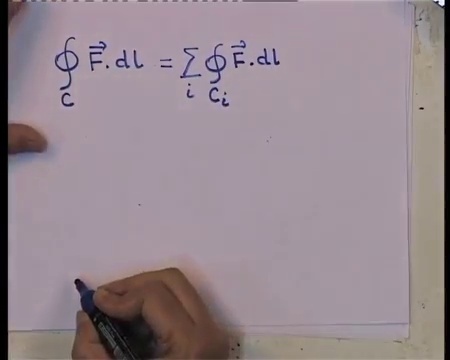 ∮_C F⃗.dl = ∑_i ∮_{C_i} F⃗.dl